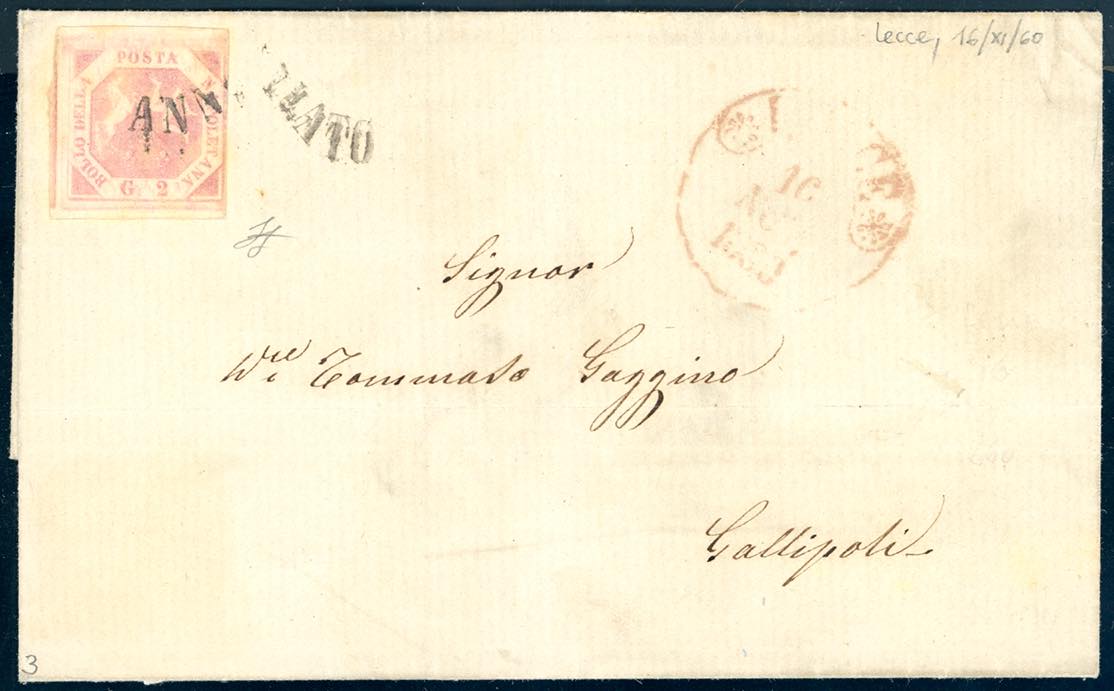 Lecce, 16/XI/60
POSTA
BOLLO DELLA
NAPOLETANA
G. 2
ANNULLATO
16
Signor
Tommaso Gaggino
Gallipoli
3